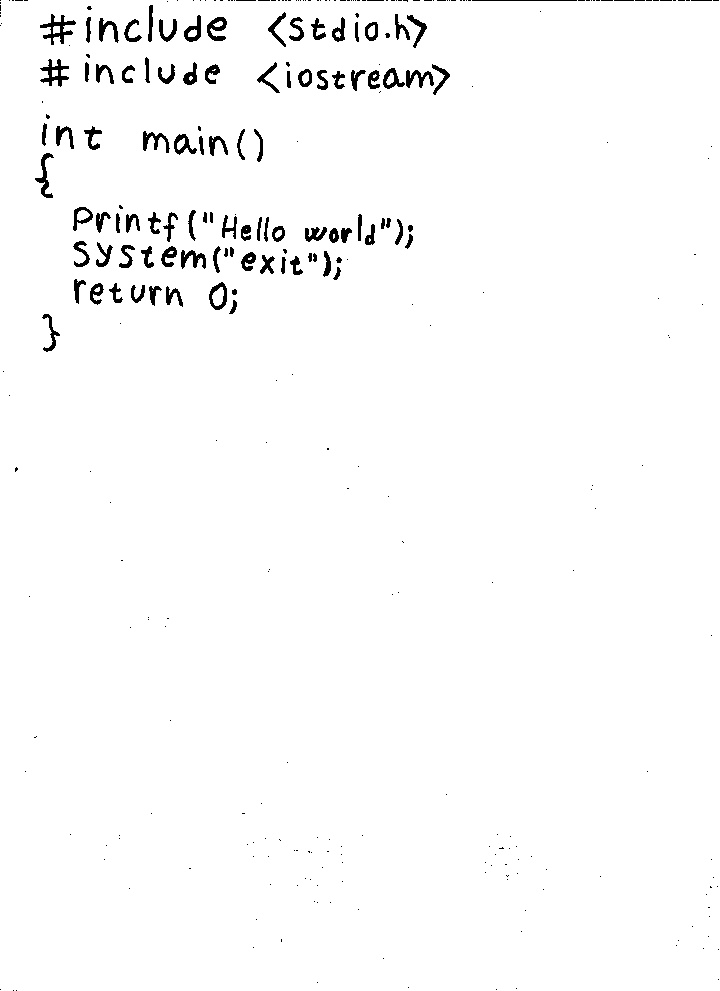 #include <stdio.h>
#include <iostream>
int main()
{
printf("Hello world");
system("exit");
return 0;
}